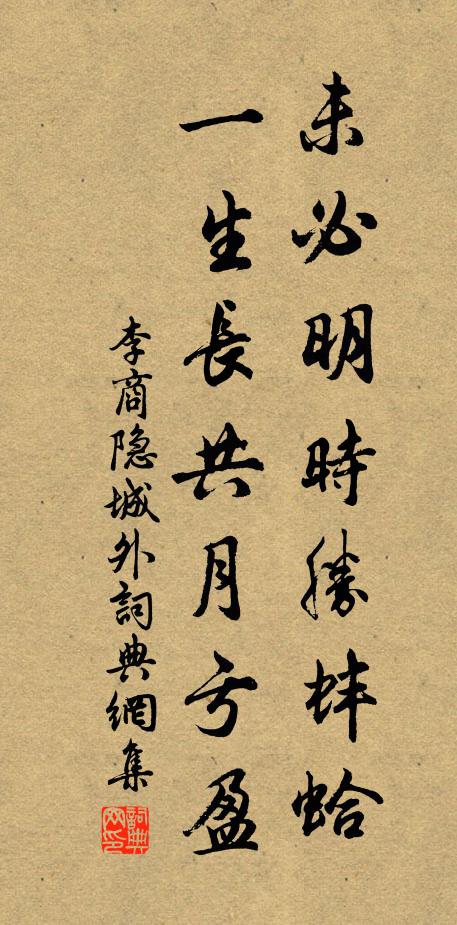 未必明時勝蚌蛤
一生長共月亏盈
李商隐城外詞典網集
詞典网印